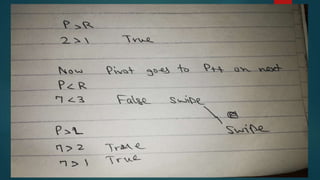 P>R
2>1 True
Now Pivot goes to P++ on next
P<R
7<3 False swipe
swipe
P>L
7>2 True
7>1 True